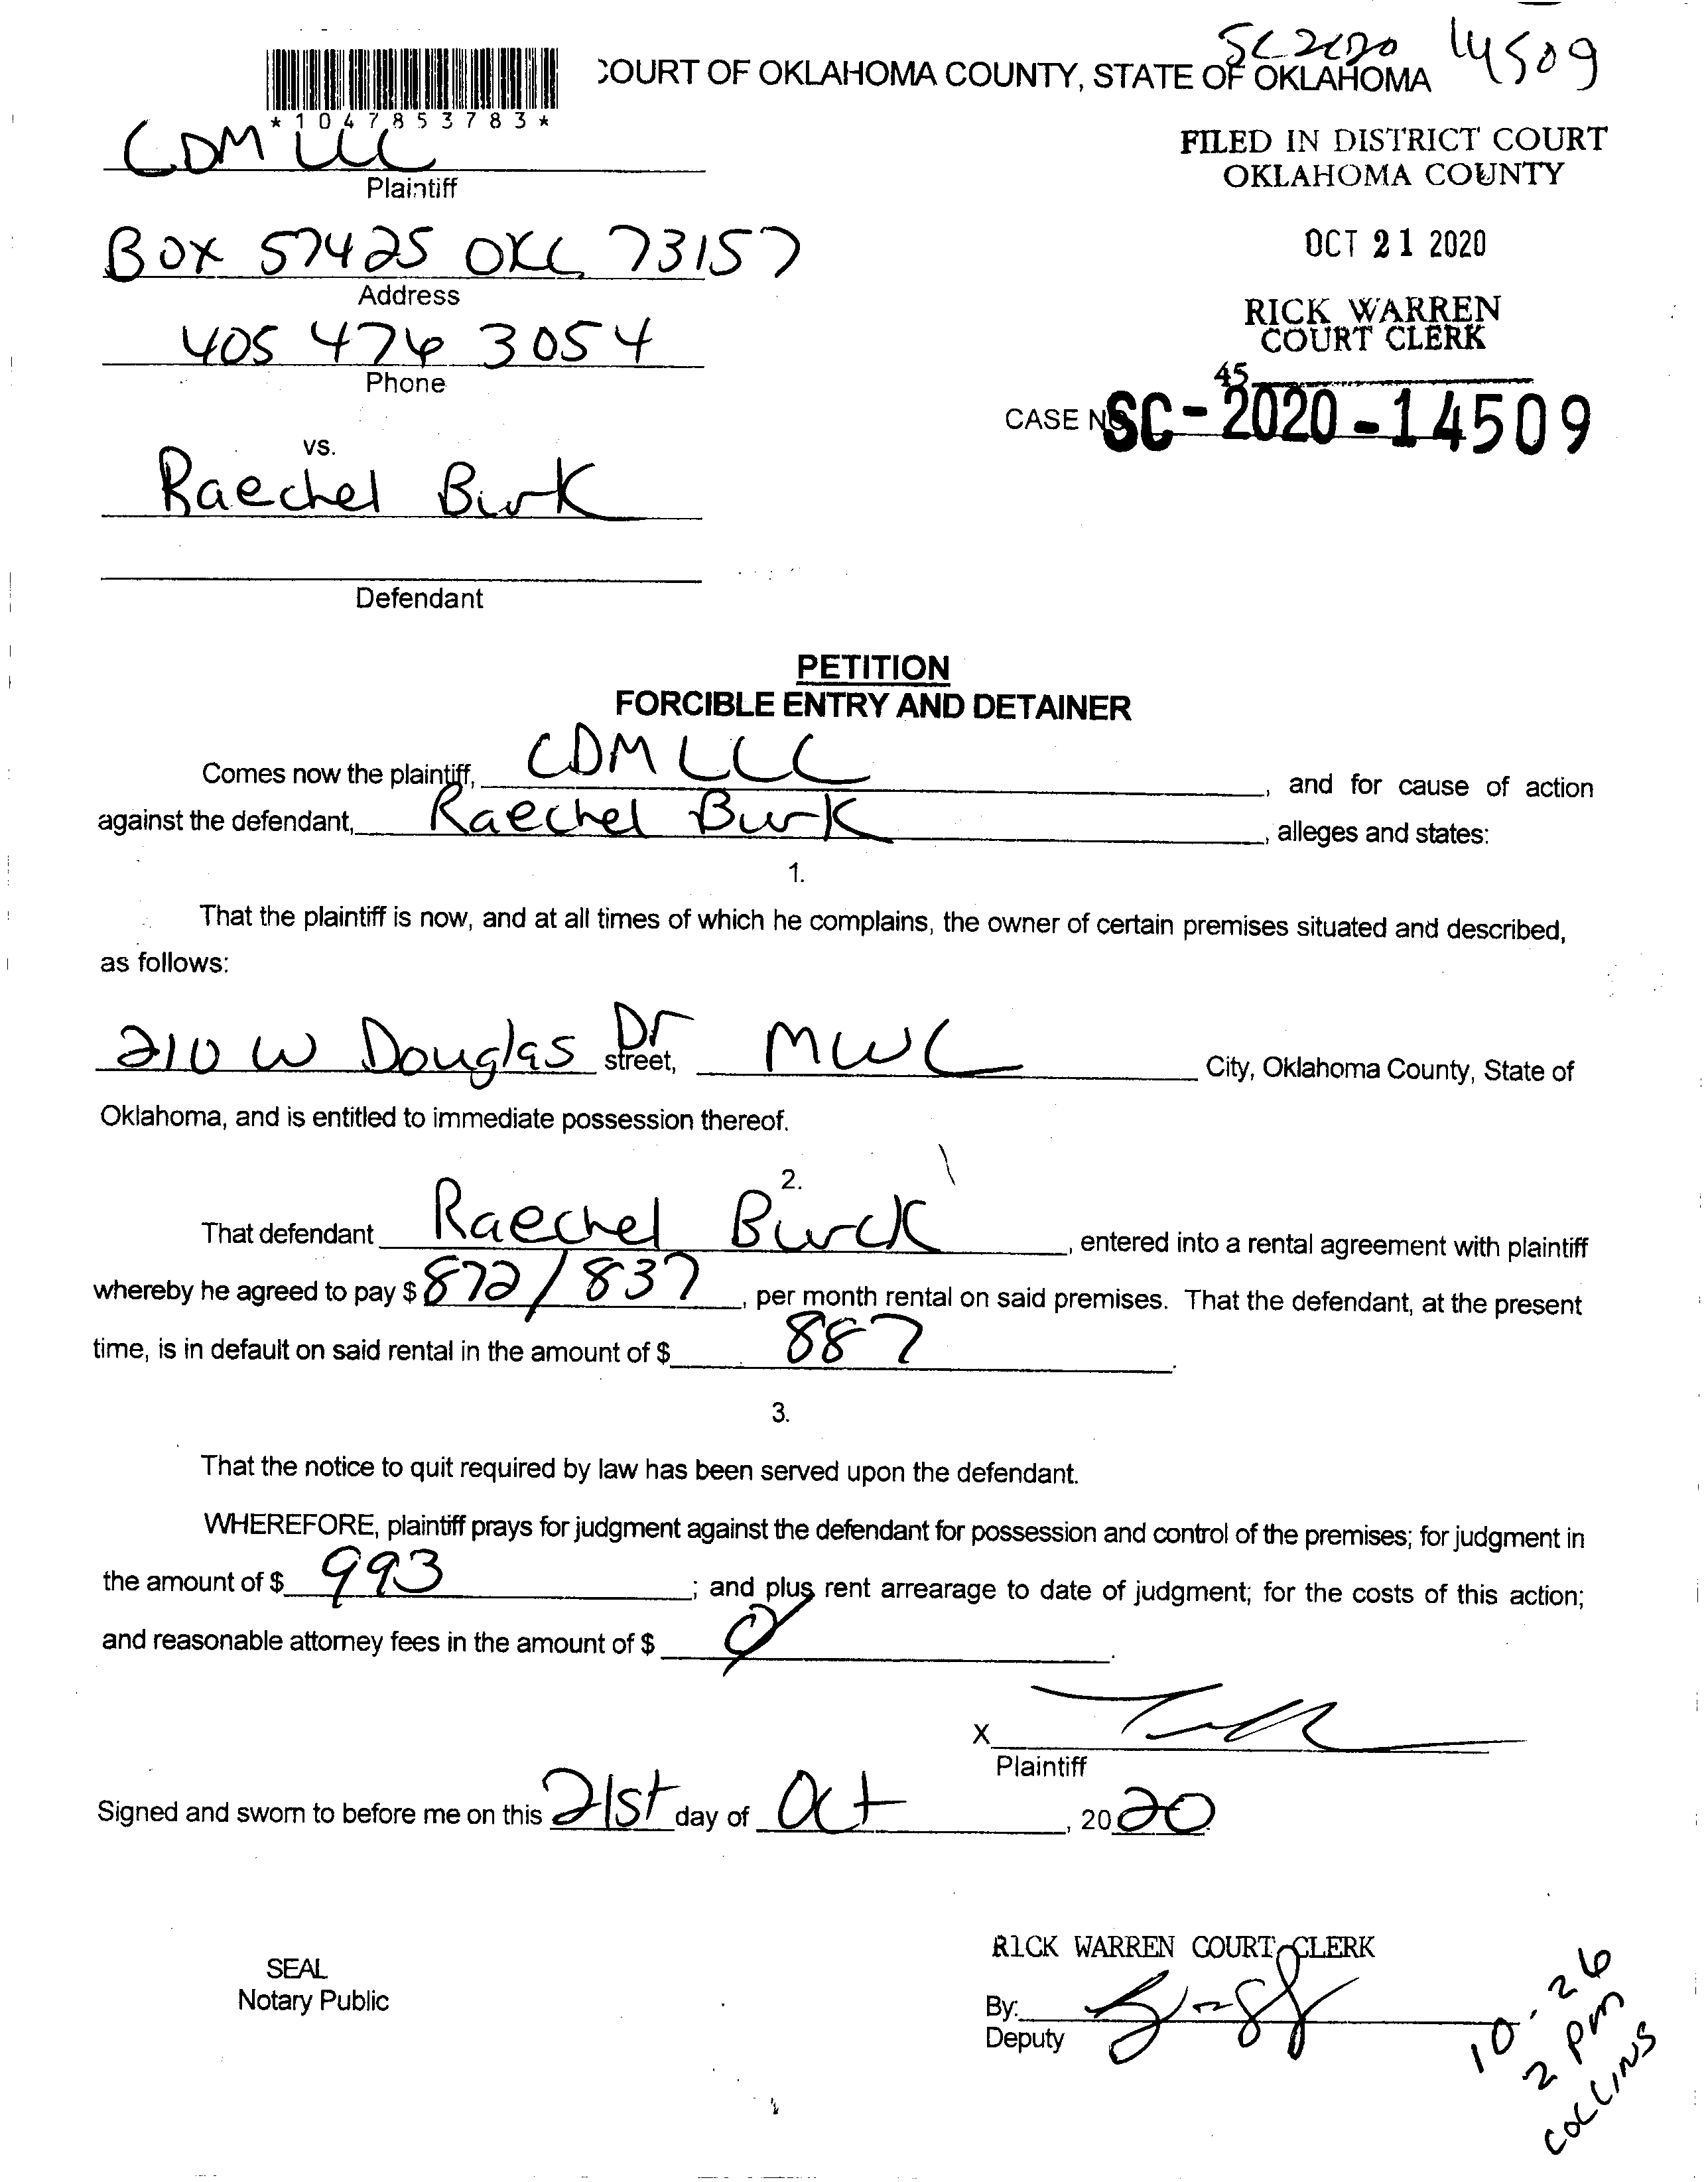 SC 2020 14509
COURT OF OKLAHOMA COUNTY, STATE OF OKLAHOMA
*1047853783*
FILED IN DISTRICT COURT
OKLAHOMA COUNTY
OCT 21 2020
RICK WARREN
COURT CLERK
45
CASE NO. SC-2020-14509
CDM LLC
Plaintiff
BOX 57425 OKC 73157
Address
405 476 3054
Phone
vs.
Raechel Burk
Defendant
PETITION
FORCIBLE ENTRY AND DETAINER
Comes now the plaintiff, CDM LLC, and for cause of action
against the defendant, Raechel Burk, alleges and states:
1.
That the plaintiff is now, and at all times of which he complains, the owner of certain premises situated and described,
as follows:
210 W Douglas Dr street, MWC City, Oklahoma County, State of
Oklahoma, and is entitled to immediate possession thereof.
2.
That defendant Raechel Burck, entered into a rental agreement with plaintiff
whereby he agreed to pay $ 872/837, per month rental on said premises. That the defendant, at the present
time, is in default on said rental in the amount of $ 887.
3.
That the notice to quit required by law has been served upon the defendant.
WHEREFORE, plaintiff prays for judgment against the defendant for possession and control of the premises; for judgment in
the amount of $ 993; and plus rent arrearage to date of judgment; for the costs of this action;
and reasonable attorney fees in the amount of $ 0.
X
Plaintiff
Signed and sworn to before me on this 21st day of Oct, 2020
SEAL
Notary Public
RICK WARREN COURT CLERK
By:
Deputy
10-26
2 pm
COLLINS